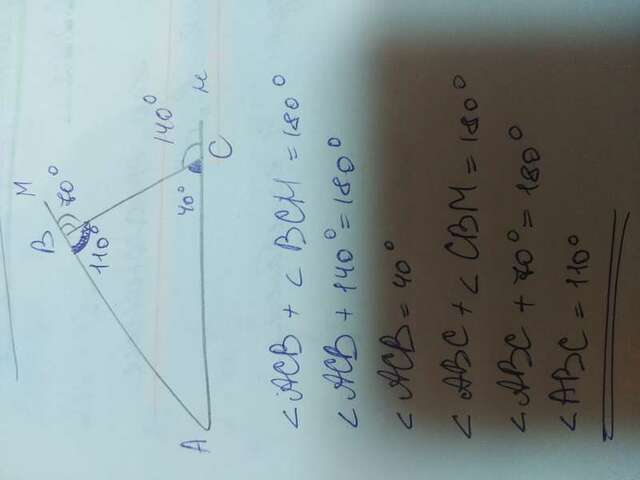 M
B
70°
110°
140°
40°
A
C
м
∠ACB + ∠BCM = 180°
∠ACB + 140° = 180°
∠ACB = 40°
∠ABC + ∠CBM = 180°
∠ABC + 70° = 180°
∠ABC = 110°